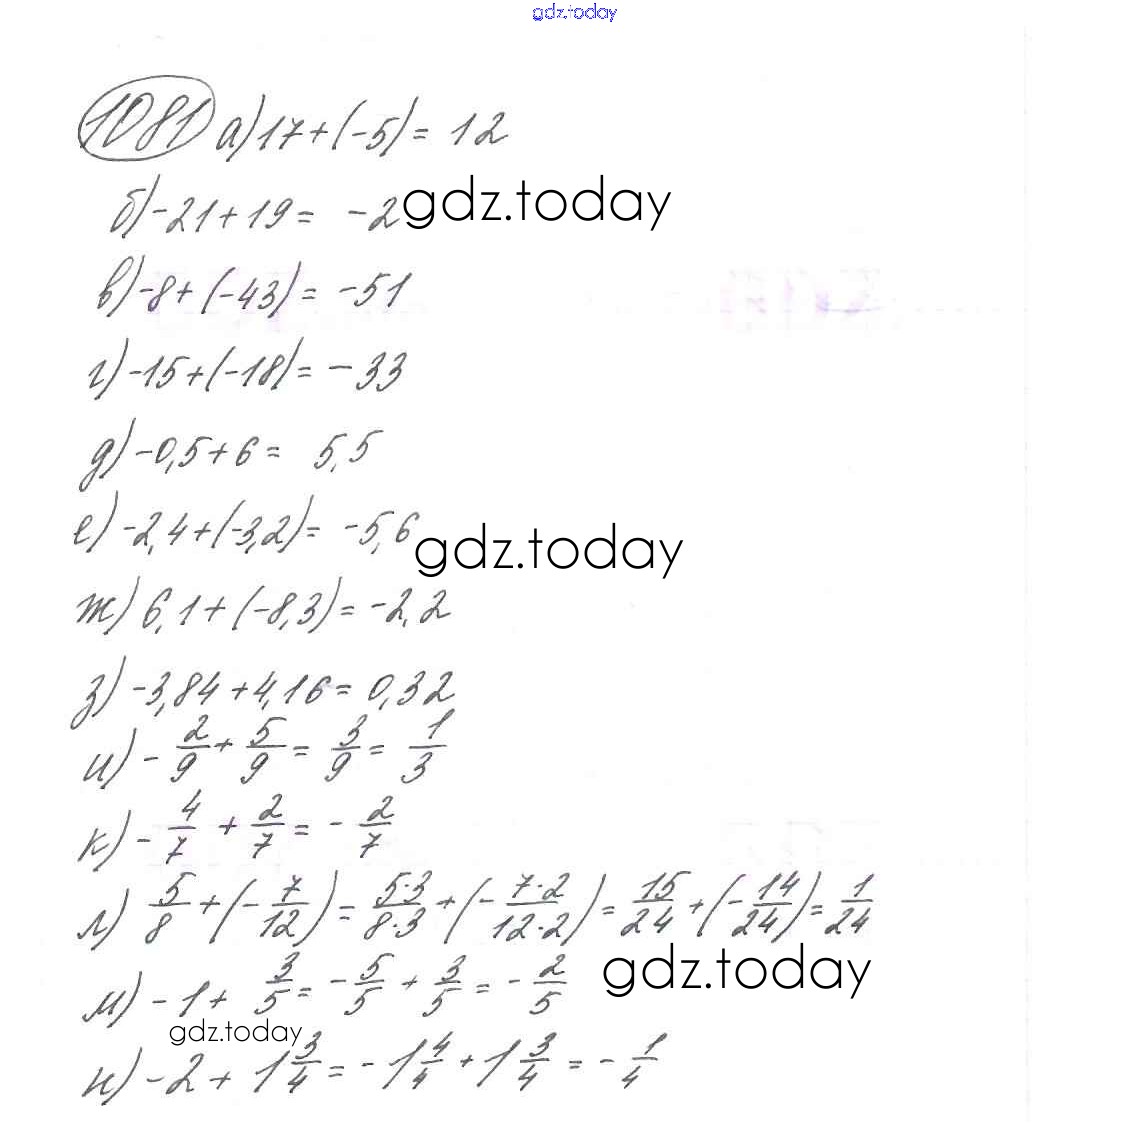 gdz.today
1081 а) 17+(-5)= 12
б) -21+19= -2 gdz.today
в) -8+(-43)= -51
г) -15+(-18)= -33
д) -0,5+6= 5,5
е) -2,4+(-3,2)= -5,6 gdz.today
ж) 6,1+(-8,3)= -2,2
з) -3,84+4,16= 0,32
и) - 2/9 + 5/9 = 3/9 = 1/3
к) - 4/7 + 2/7 = - 2/7
л) 5/8 + (- 7/12) = 5·3/8·3 + (- 7·2/12·2) = 15/24 + (- 14/24) = 1/24
gdz.today
м) -1 + 3/5 = - 5/5 + 3/5 = - 2/5
gdz.today
н) -2 + 1 3/4 = -1 4/4 + 1 3/4 = - 1/4